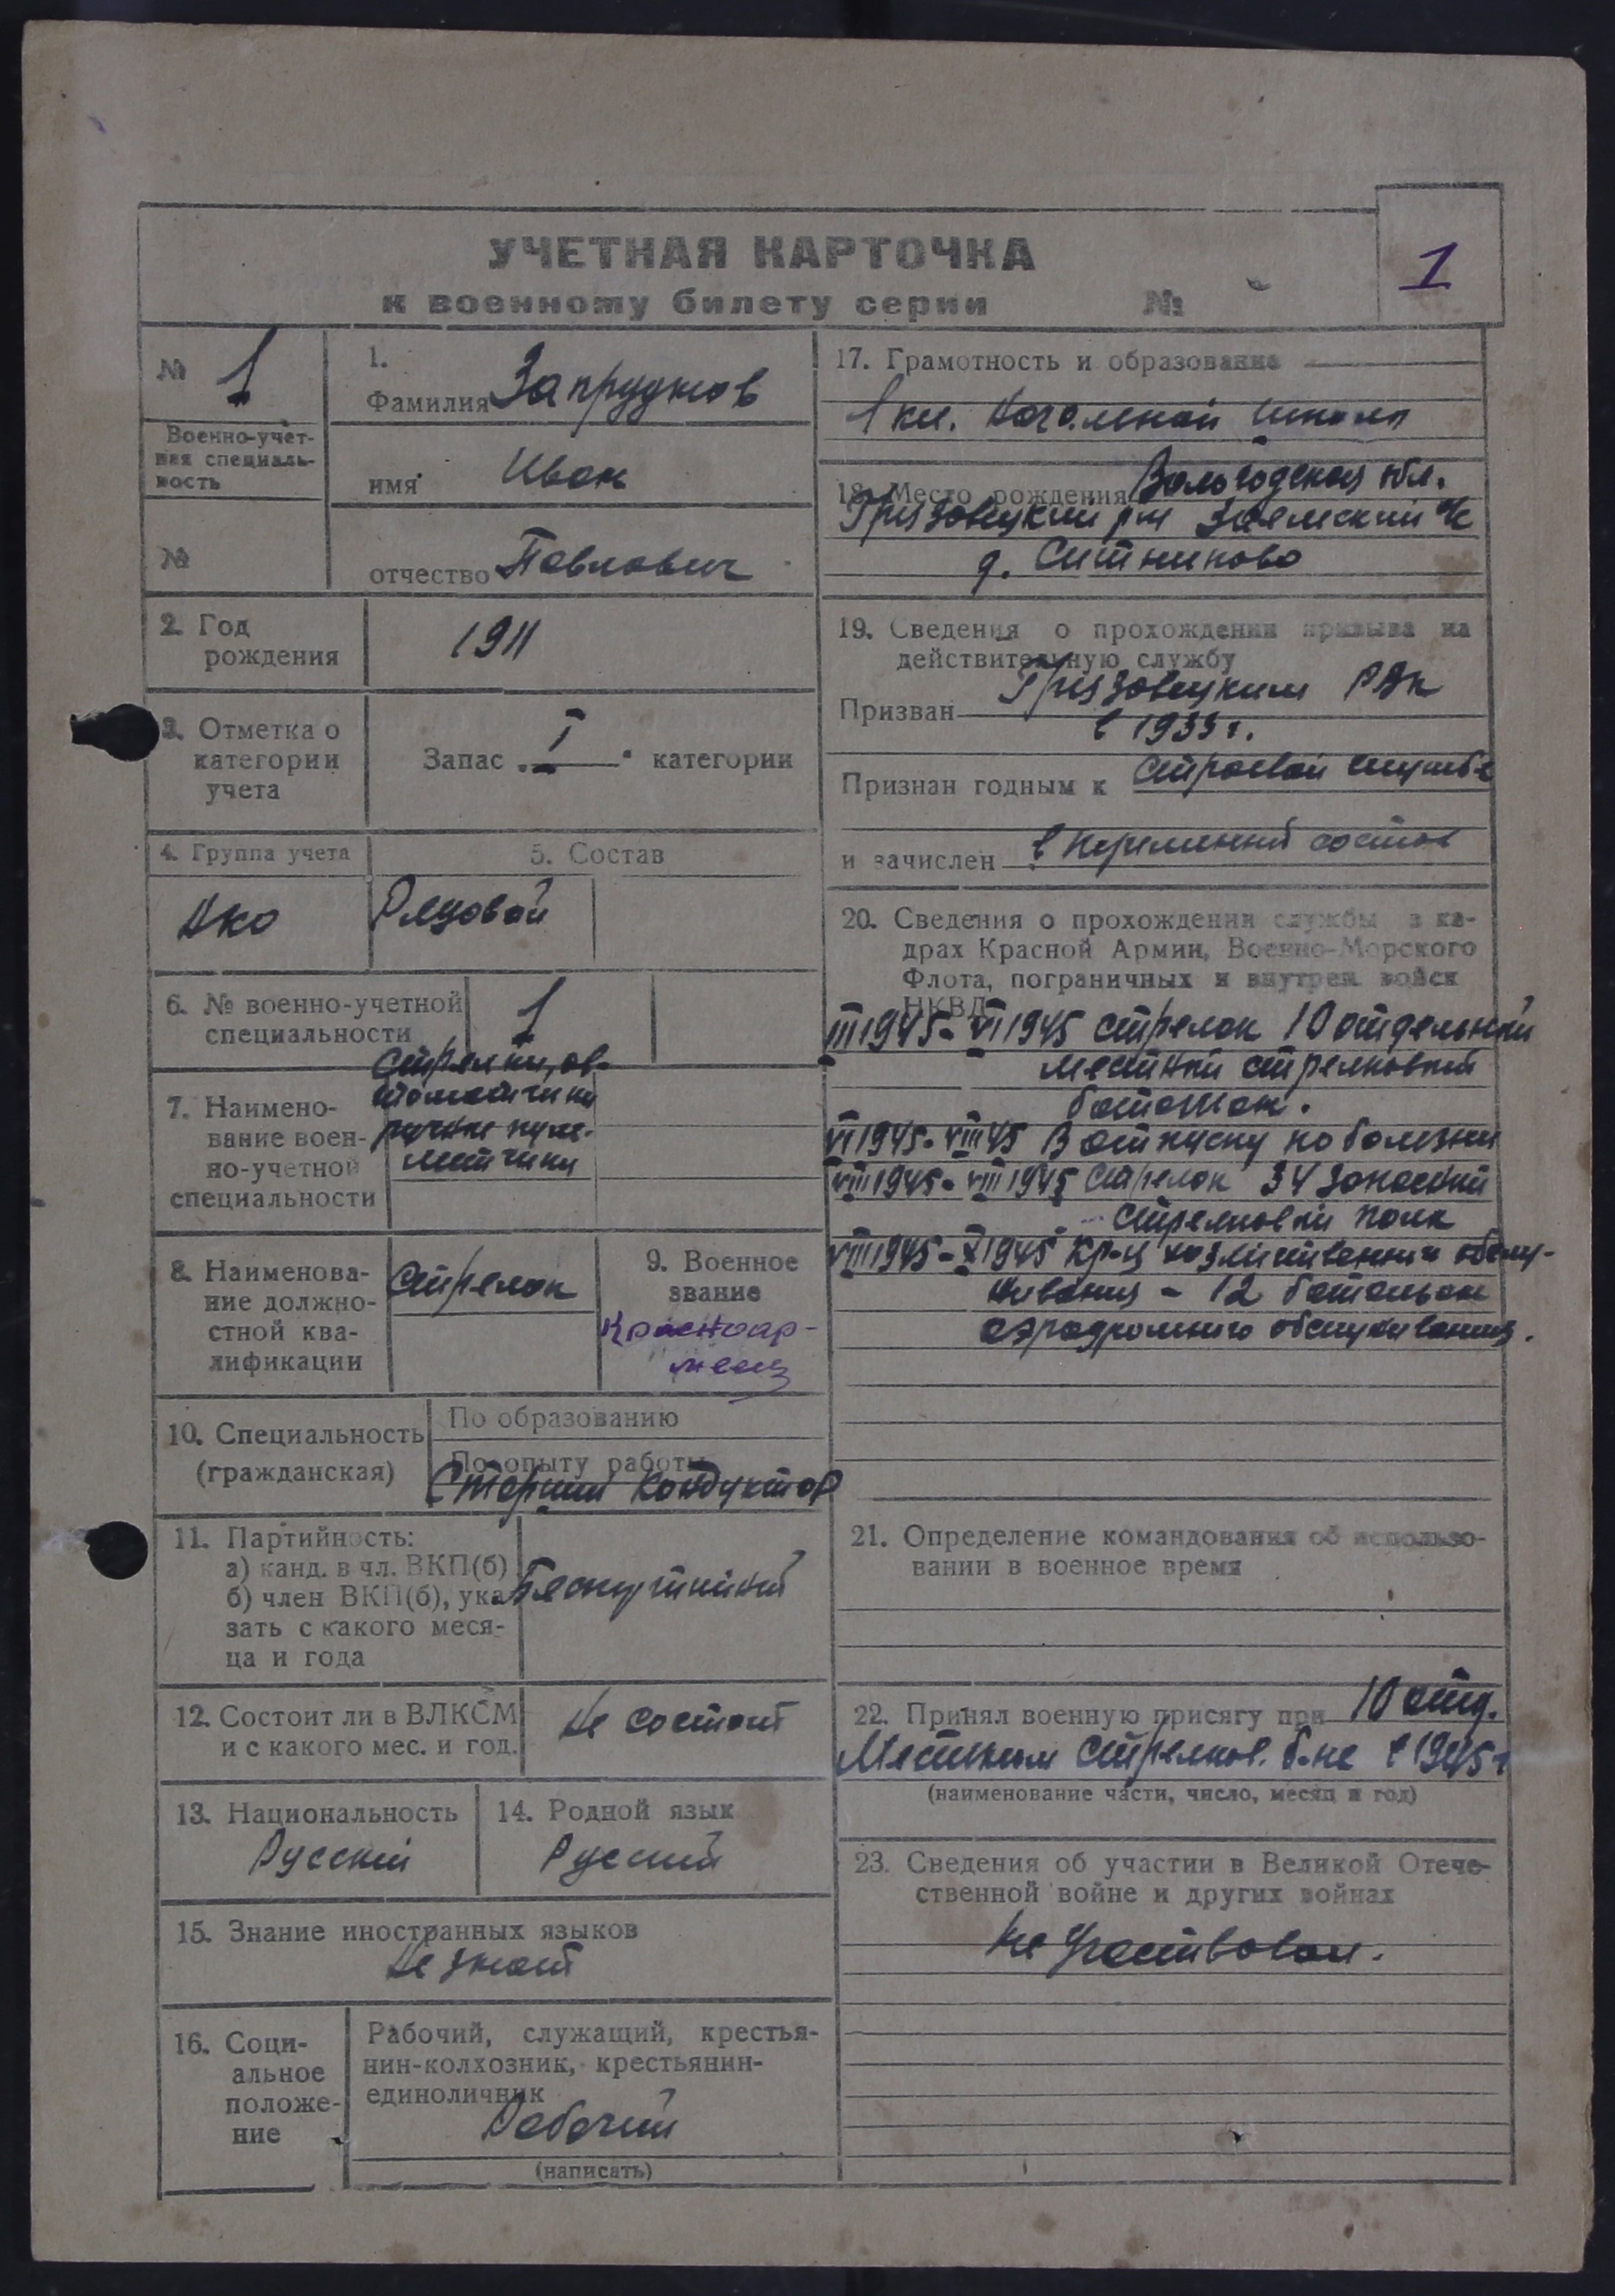 УЧЕТНАЯ КАРТОЧКА
к военному билету серии №
1
№ 1
Военно-учет-
ная специаль-
ность
№
1.
Фамилия Запруднов
имя Иван
отчество Павлович
2. Год
рождения
1911
3. Отметка о
категории
учета
Запас I категории
4. Группа учета
5. Состав
Рядовой
6. № военно-учетной
специальности
1
7. Наимено-
вание воен-
но-учетной
специальности
Стрелки, ав-
томатчики
ручные пуле-
метчики
8. Наименова-
ние должно-
стной ква-
лификации
Стрелок
9. Военное
звание
Красноар-
меец
10. Специальность
(гражданская)
По образованию
По опыту работы
Старший Кондуктор
11. Партийность:
а) канд. в чл. ВКП(б)
б) член ВКП(б), ука-
зать с какого меся-
ца и года
Беспартийный
12. Состоит ли в ВЛКСМ
и с какого мес. и год.
Не состоит
13. Национальность
Русский
14. Родной язык
Русский
15. Знание иностранных языков
Не знает
16. Соци-
альное
положе-
ние
Рабочий, служащий, крестья-
нин-колхозник, крестьянин-
единоличник
Рабочий
(написать)
17. Грамотность и образование
1 кл. Начальной школы
18. Место рождения Вологодская обл.
Грязовецкий р-н с/с
д. Ситниково
19. Сведения о прохождении призыва на
действительную службу
Призван Грязовецким РВк
в 1933 г.
Признан годным к строевой службе
и зачислен в переменный состав
20. Сведения о прохождении службы в ка-
драх Красной Армии, Военно-Морского
Флота, пограничных и внутрен. войск
НКВД
III 1945 - VI 1945 стрелок 10 отдельный
местный стрелковый
батальон.
VI 1945 - VIII 45 В отпуску по болезни
VIII 1945 - VIII 1945 стрелок 34 запасный
стрелковый полк
VIII 1945 - X 1945 Кр-ц хозяйственного обслу-
живания - 12 батальон
аэродромного обслуживания.
21. Определение командования об использо-
вании в военное время
22. Принял военную присягу при 10 отд.
Местном Стрелков. б-не в 1945 г
(наименование части, число, месяц и год)
23. Сведения об участии в Великой Отече-
ственной войне и других войнах
Не Участвовал.